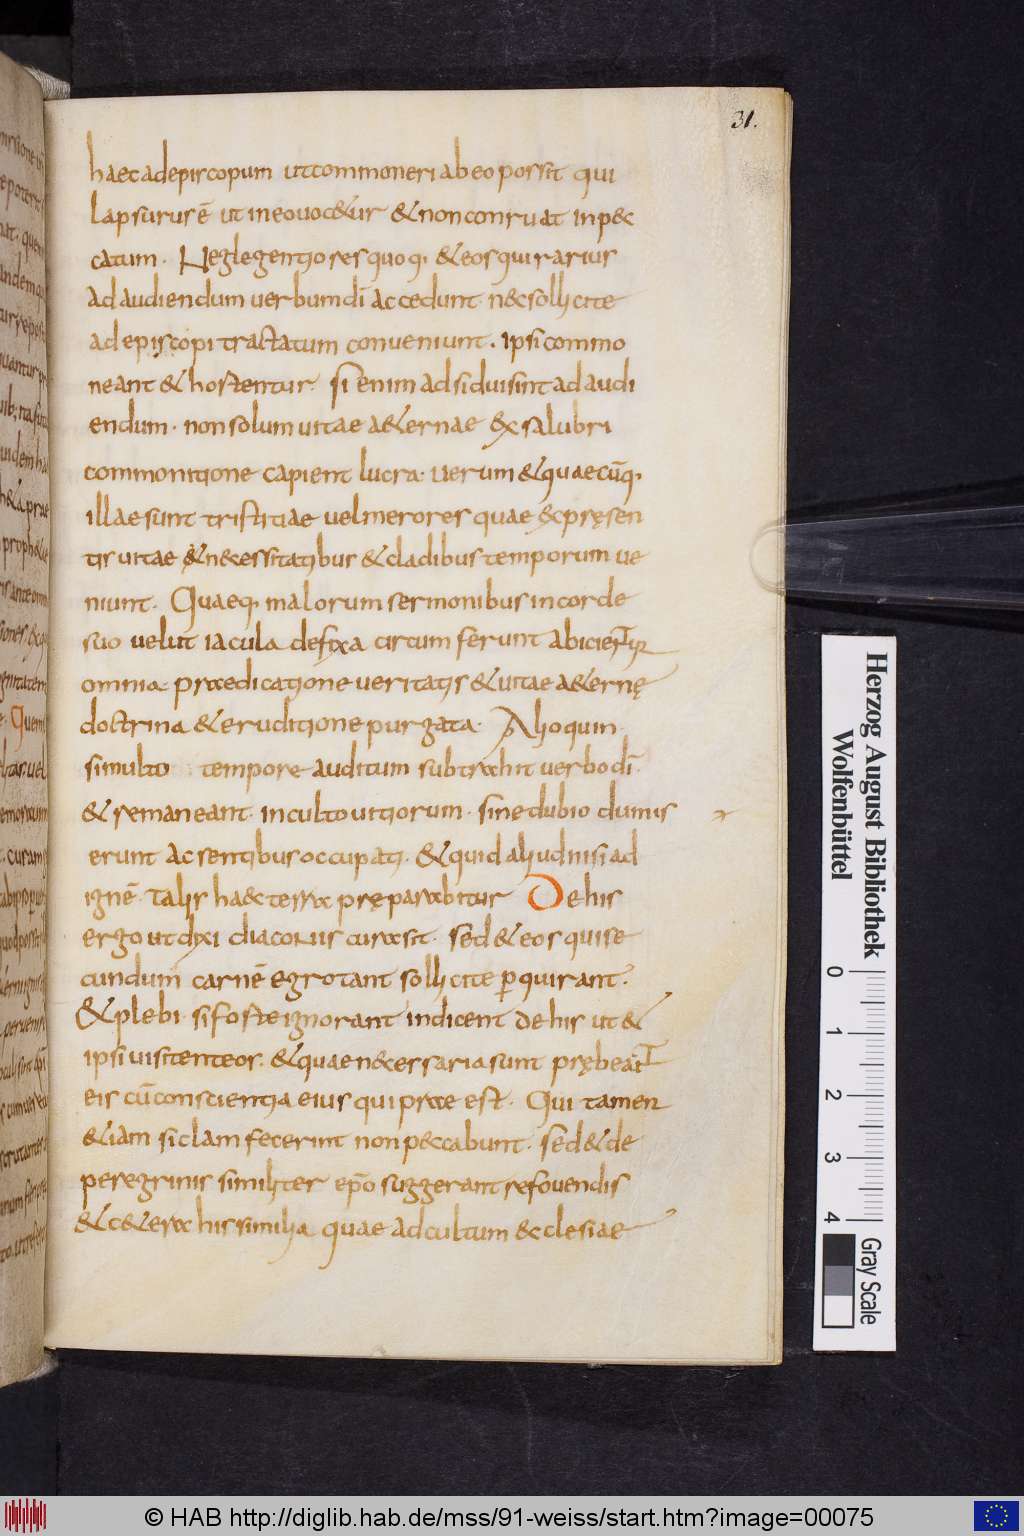 31.
haec ad episcopum ut commoneri ab eo possit qui
lapsurus ē ut in eo uocetur & non conruat in pec
catum. Neglegentiores quoq; & eos qui rarius
ad audiendum uerbum dī accedunt nec sollicite
ad episcopi tractatum conueniunt. ipsi commo
neant & hostentur. si enim adsidui sint ad audi
endum. non solum uitae aeternae ex salubri
commonitione capient lucra. uerum & quaecūq;
illae sunt tristitiae uel merores quae ex pręsen
tis uitae & necessitatibus & cladibus temporum ue
niunt. Quaeq; malorum sermonibus in corde
suo uelut iacula defixa circumferunt abicientur
omnia praedicatione ueritatis & uitae aeternę
doctrina & eruditione purgata. Alioquin
si multo tempore auditum subtrahit uerbo dī
& remaneant inculto uitiorum. sine dubio dumis
erunt ac sentibus occupati. & quid aliud nisi ad
ignē talis haec terra pręparabitur De his
ergo ut dixi diaconis cura sit. sed & eos qui se
cundum carnē egrotant sollicite pquirant.
& plebi. si foste ignorant indicent de his ut &
ipsi uisitent eos. & quae necessaria sunt prębeant
eis cū conscientia eius qui prae est. Qui tamen
etiam si clam fecerint non peccabunt. sed & de
peregrinis similiter epō suggerant refouendis
& cetera his similia quae ad cultum ecclesiae
Herzog August Bibliothek
Wolfenbüttel
0 1 2 3 4
Gray Scale
© HAB http://diglib.hab.de/mss/91-weiss/start.htm?image=00075